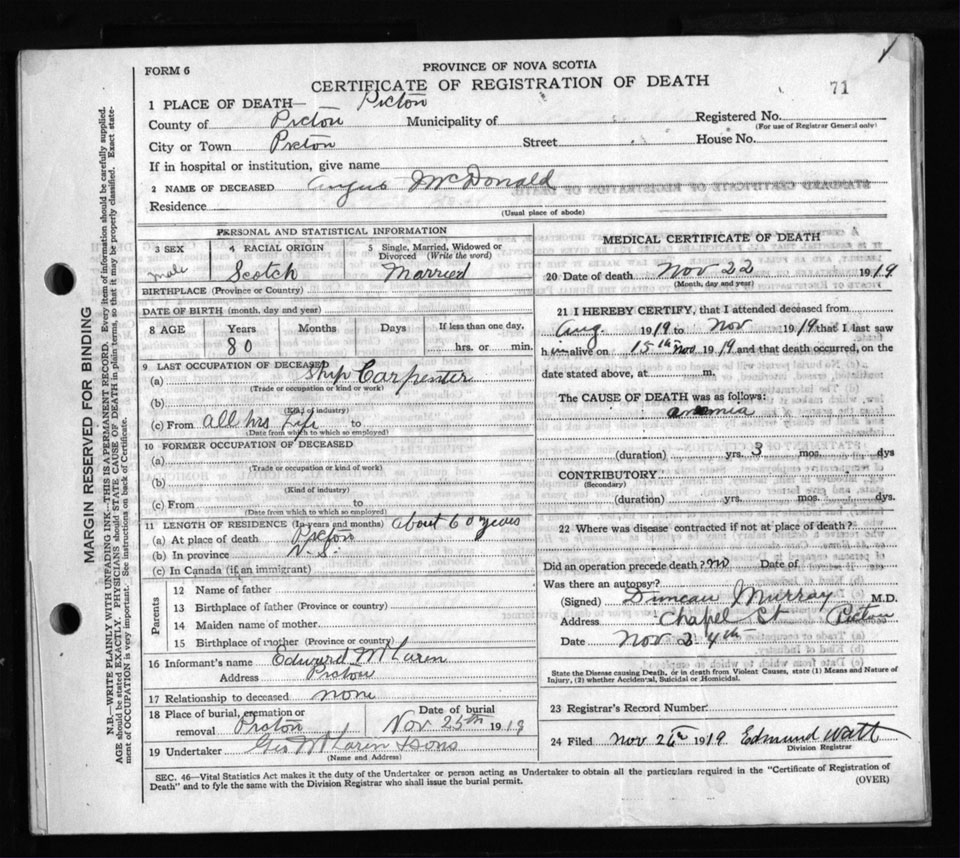 FORM 6
PROVINCE OF NOVA SCOTIA
CERTIFICATE OF REGISTRATION OF DEATH
71
1 PLACE OF DEATH— Pictou
County of Pictou Municipality of Registered No.
(For use of Registrar General only)
City or Town Pictou Street House No.
If in hospital or institution, give name
2 NAME OF DECEASED Angus McDonald
Residence
(Usual place of abode)
PERSONAL AND STATISTICAL INFORMATION
3 SEX 4 RACIAL ORIGIN 5 Single, Married, Widowed or Divorced (Write the word)
male Scotch Married
BIRTHPLACE (Province or Country)
DATE OF BIRTH (month, day and year)
8 AGE Years Months Days If less than one day,
80 hrs. or min.
9 LAST OCCUPATION OF DECEASED
(a) Ship Carpenter
(Trade or occupation or kind or work)
(b)
(Kind of industry)
(c) From all his Life to
(Date from which to which so employed)
10 FORMER OCCUPATION OF DECEASED
(a)
(Trade or occupation or kind of work)
(b)
(Kind of industry)
(c) From to
(Date from which to which so employed)
11 LENGTH OF RESIDENCE (In years and months) about 60 years
(a) At place of death Pictou
(b) In province N.S.
(c) In Canada (if an immigrant)
Parents
12 Name of father
13 Birthplace of father (Province or country)
14 Maiden name of mother
15 Birthplace of mother (Province or country)
16 Informant's name Edward McLaren
Address Pictou
17 Relationship to deceased none
18 Place of burial, cremation or removal Pictou Date of burial Nov 25th 1919
19 Undertaker Geo McLaren & Sons
(Name and Address)
MEDICAL CERTIFICATE OF DEATH
20 Date of death Nov 22 1919
(Month, day and year)
21 I HEREBY CERTIFY, that I attended deceased from
Aug. 1919 to Nov 1919 that I last saw
him alive on 15th Nov 1919 and that death occurred, on the
date stated above, at m.
The CAUSE OF DEATH was as follows:
anemia
(duration) yrs. 3 mos. dys
CONTRIBUTORY
(Secondary)
(duration) yrs. mos. dys.
22 Where was disease contracted if not at place of death?
Did an operation precede death? no Date of
Was there an autopsy?
(Signed) Duncan Murray M.D.
Address Chapel St Pictou
Date Nov 24th
State the Disease causing Death, or in death from Violent Causes, state (1) Means and Nature of
Injury, (2) whether Accidental, Suicidal or Homicidal.
23 Registrar's Record Number
24 Filed Nov 26th 1919 Edmund Watt
Division Registrar
SEC. 46—Vital Statistics Act makes it the duty of the Undertaker or person acting as Undertaker to obtain all the particulars required in the "Certificate of Registration of
Death" and to fyle the same with the Division Registrar who shall issue the burial permit.
(OVER)
MARGIN RESERVED FOR BINDING
N.B.—WRITE PLAINLY WITH UNFADING INK—THIS IS A PERMANENT RECORD. Every item of information should be carefully supplied.
AGE should be stated EXACTLY. PHYSICIANS should STATE CAUSE OF DEATH in plain terms, so that it may be properly classified. Exact state-
ment of OCCUPATION is very important. See instructions on back of Certificate.